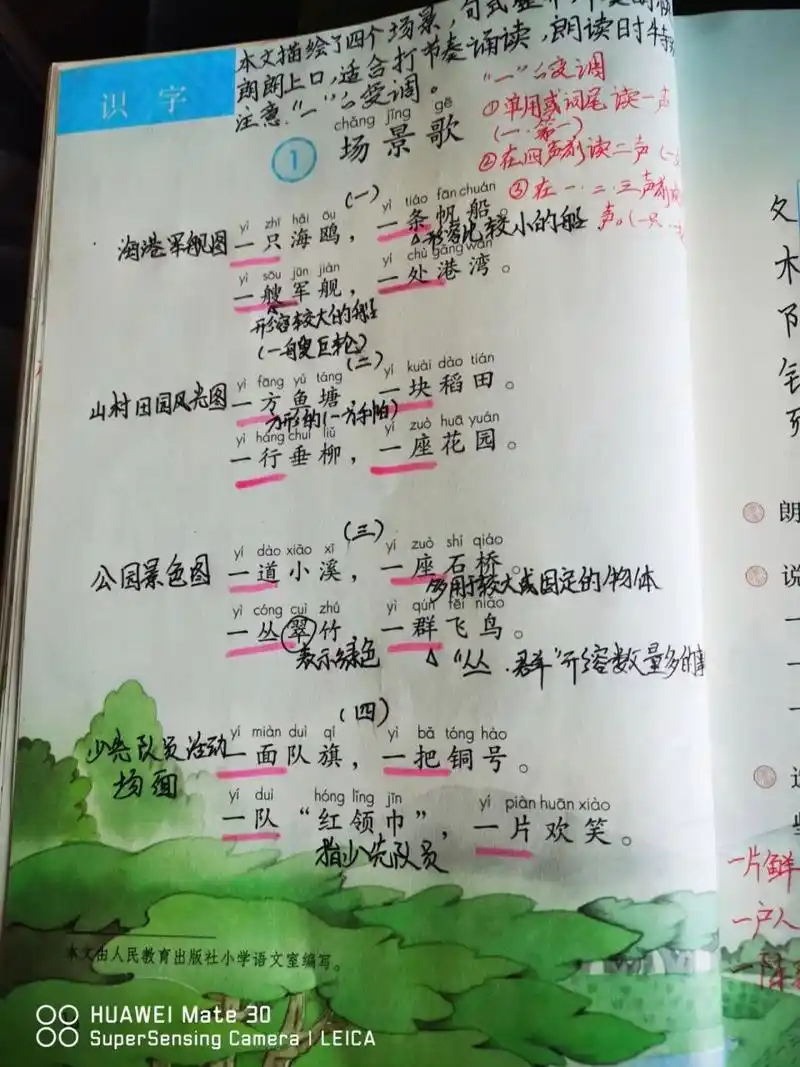 本文描绘了四个场景,句式整
朗朗上口,适合打节奏诵读,朗读时特
注意“一”的变调。
识字
“一”的变调
①单用或词尾 读一声
(一·第一)
②在四声前读二声
③在一·二·三声前
声。(一只
chǎng jǐng gē
① 场景歌
(一)
yì zhī hǎi ōu yì tiáo fān chuán
海港军舰图 一只海鸥, 一条帆船
形容比较小的船
yì sōu jūn jiàn yí chù gǎng wān
一艘军舰, 一处港湾。
形容较大的船
(一艘巨轮)
(二)
yì fāng yú táng yí kuài dào tián
山村田园风光图 一方鱼塘 一块稻田。
方形的(一方手帕)
yì háng chuí liǔ yí zuò huā yuán
一行垂柳, 一座花园。
(三)
yí dào xiǎo xī yí zuò shí qiáo
公园景色图 一道小溪, 一座石桥。
多用于较大或固定的物体
yì cóng cuì zhú yì qún fēi niǎo
一丛翠竹 一群飞鸟。
表示绿色 △“丛·群”形容数量多的事
(四)
yí miàn duì qí yì bǎ tóng hào
少先队员活动 一面队旗, 一把铜号。
场面
yí duì hóng lǐng jīn yí piàn huān xiào
一队“红领巾”, 一片欢笑。
指少先队员
本文由人民教育出版社小学语文室编写。
朗
说
一片鲜
一户人
HUAWEI Mate 30
SuperSensing Camera | LEICA